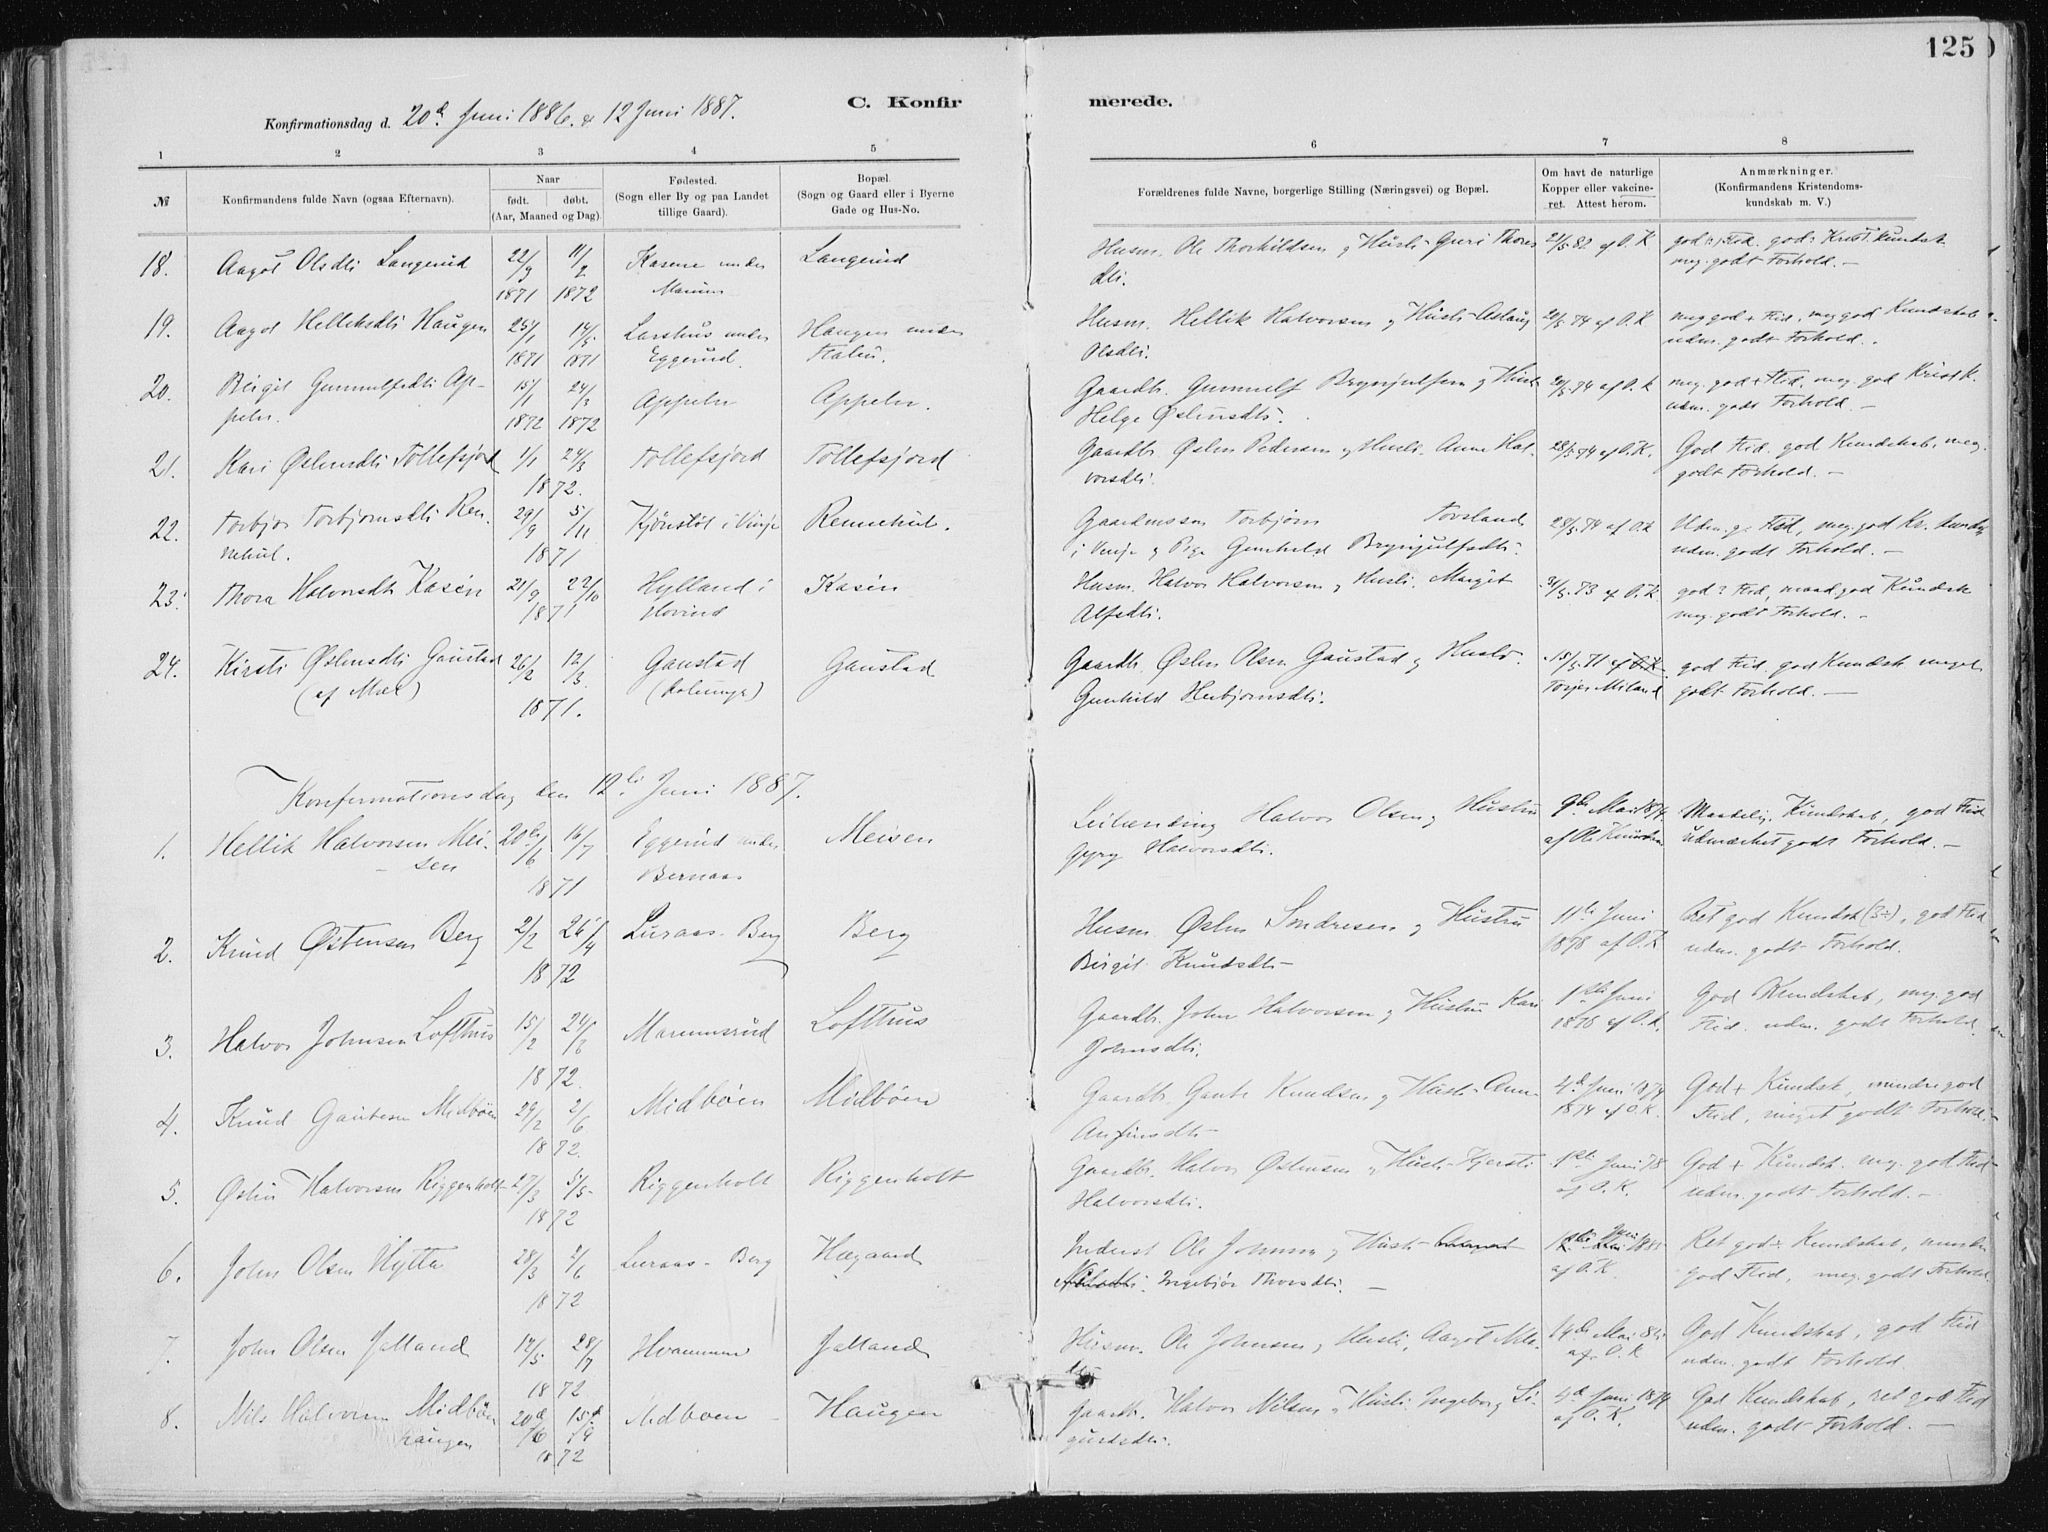 125
C. Konfir merede.
Konfirmationsdag d. 20d. Juni 1886. & 12 Juni 1887.
1 2 3 4 5 6 7 8
№ Konfirmandens fulde Navn (ogsaa Efternavn). Naar født. døbt. (Aar, Maaned og Dag). Fødested. (Sogn eller By og paa Landet tillige Gaard). Bopæl. (Sogn og Gaard eller i Byerne Gade og Hus-No. Forældrenes fulde Navne, borgerlige Stilling (Næringsvei) og Bopæl. Om havt de naturlige Kopper eller vakcineret. Attest herom. Anmærkninger. (Konfirmandens Kristendomskundskab m. V.)
18. Aagot Olsdtr Langerud 22/9 11/2 Kasene under Langerud Husm. Ole Thorkildsen og Hustr. Guri Thores 21/5 82 af O. K god Flid. god Krist. kundsk
1871 1872 dtr. meg. godt Forhold. —
19. Aagot Helliksdtr Haugen 25/1 14/5 Larshus under Haugen under Husm. Hellik Halvorsen og Hustr. Aslaug 74 af O. K meg god + Flid, meg god Kundskab
1871 1871 Eggerud. Olsdtr. udm. godt Forhold. -
20. Birgit Gunnulfsdtr Ap- 15/1 24/3 Appelen Appelen. Gaardb. Gunnulf Brynjulfsen og Hustr 74 af O. K meg. god + Flid. meg. god Krist k.
1872 1872 Helge Østensdtr. udm. godt Forhold. —
21. Kari Østensdtr Tollefsjord 1/1 24/3 Tollefsjord Tollefsjord Gaardb. Østen Pedersen og Hustr. Anne Hal- 28/5 74 af O. K. God Flid. god Kundskab, meg.
1872. vorsdtr. godt Forhold. —
22. Torbjør Torbjørnsdtr Ren- 29/9 5/11 i Vinje Rennehul. Gaardmssøn Torbjørn Tovsland 28/5 74 af O. K Udm. g. Flid, meg. god Kr. kundsk
nehul. 1871 i Vinje og Pige Gunhild Brynjulfsdtr. udm. godt Forhold. —
23. Thora Halvorsdtr Kasén 21/9 22/10 Hylland i Kasén Husm. Halvor Halvorsen og Hustr. Margit 73 af O. K. god Flid, maad. god Kundsk
1871 Hovind Alfsdtr. meg. godt Forhold. -
24. Kirsti Østensdtr Gaustad 26/2 12/3. Gaustad Gaustad Gaardb. Østen Olsen Gaustad og Hustr. 15/5 71 af O. K god Flid, god Kundsk. meget
(af Mæl) 1871. Gunhild Herbjørnsdtr. Torjer Miland godt Forhold. —
Konfirmationsdag den 12te Juni 1887.
1. Hellik Halvorsen Mei- 20de/6 16/7 Eggerud under Meisen Leilænding Halvor Olsen og Hustru 9de Mai 1874 Maadelig Kundskab, god Flid
sen 1871 Bernaas Gyry Halvorsdtr. af Ole Knudsen udmærket godt Forhold. —
2. Knud Østensen Berg 2/2 26/4 Luraas-Berg Berg Husm. Østen Sondresen og Hustru 11te Juni Ret god Kundsk (3÷), god Flid
1872 Birgit Knudsdtr 1878 af O. K. udm. godt Forhold.
3. Halvor Johnsen Lofthus 15/2 Marumsrud Lofthus Gaardb. John Halvorsen og Hustru Kari 1ste Juni God Kundskab, meg. god
1872. Johnsdtr. 1878 af O. K. Flid. udm. godt Forhold.
4. Knud Gautesen Midbøen 29/2 2/6 Midbøen Midbøen Gaardb. Gaute Knudsen og Hustr. Anne 4d Juni 1874 God + Kundsk, mindre god
1872. Anfinsdtr 1874 af O. K. Flid, meget godt Forhold. -
5. Østen Halvorsen Riggenholt 27/3 5/5 Riggenholt Riggenholt Gaardb. Halvor Østensen og Hustr. Kjersti 1ste Juni 78 God + Kundsk. meg. god Flid
1872 Halvorsdtr. af O. K. udm. godt Forhold. —
6. John Olsen Hytta 28/3 2/6 Luraas-Berg Hægaard Inderst Ole Johnsen og Hustr. Ret god ÷ Kundskab, mindre
1872 Ingebjør Thorsdtr. — af O. K. god Flid, meg. godt Forhold
7. John Olsen Jalland 12/5 28/7 Hvammen Jalland Husm. Ole Johnsen og Hustr. Aagot 14de Mai God Kundskab, god Flid
1872 af O. K udm. godt Forhold.
8. Nils Halvorsen Midbøen 20d/6 15d/9 Midbøen Haugen Gaardb. Halvor Nilsen og Hustr. Ingeborg Si- 4d Juni 1874 God Kundskab, ret god Flid
haugen 1872 gurdsdtr. af O. K. udm. godt Forhold. —